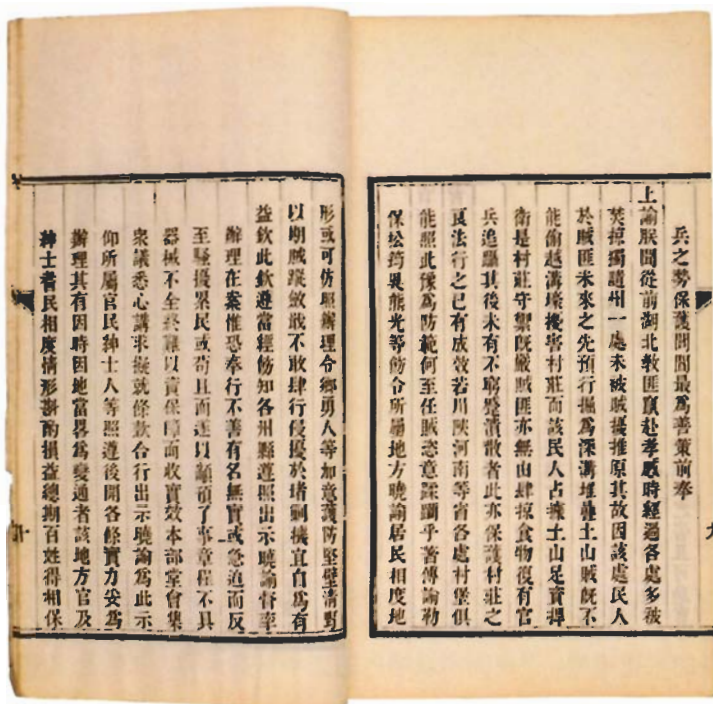 兵之勞保護閭閻最爲善策前奉
上諭朕聞從前湖北教匪竄赴孝感時經過各處多被
焚掠獨隨州一處未被賊擾推原其故因該處民人
於賊匪未來之先預行掘爲深溝堆壘土山賊旣不
能偷越溝壕擾害村莊而該民人占據土山足資捍
衛是村莊守禦旣嚴賊匪亦無由肆掠食物復有官
兵追躡其後未有不窮蹙潰散者此亦保護村莊之
良法行之已有成效若川陝河南等省各處村堡俱
能照此豫爲防範何至任賊恣意蹂躪乎著傳諭勒
保松筠吳熊光等飭令所屬地方曉諭居民相度地
形或可仿照辦理令鄉勇人等加意護防堅壁清野
以期賊蹤斂戢不敢肆行侵擾於堵剿機宜自爲有
益欽此欽遵當經飭知各州縣遵照出示曉諭督率
辦理在案惟恐奉行不善有名無實或急迫而反
至騷擾累民或苟且而遂以顢頇了事章程不具
器械不全終難以資保障而收實效本部堂會集
衆議悉心講求擬就條款合行出示曉諭爲此示
仰所屬官民紳士人等照遵後開各條實力妥爲
辦理其有因時因地當畧爲變通者該地方官及
紳士耆民相度情形斟酌損益總期百姓得相保
九
十